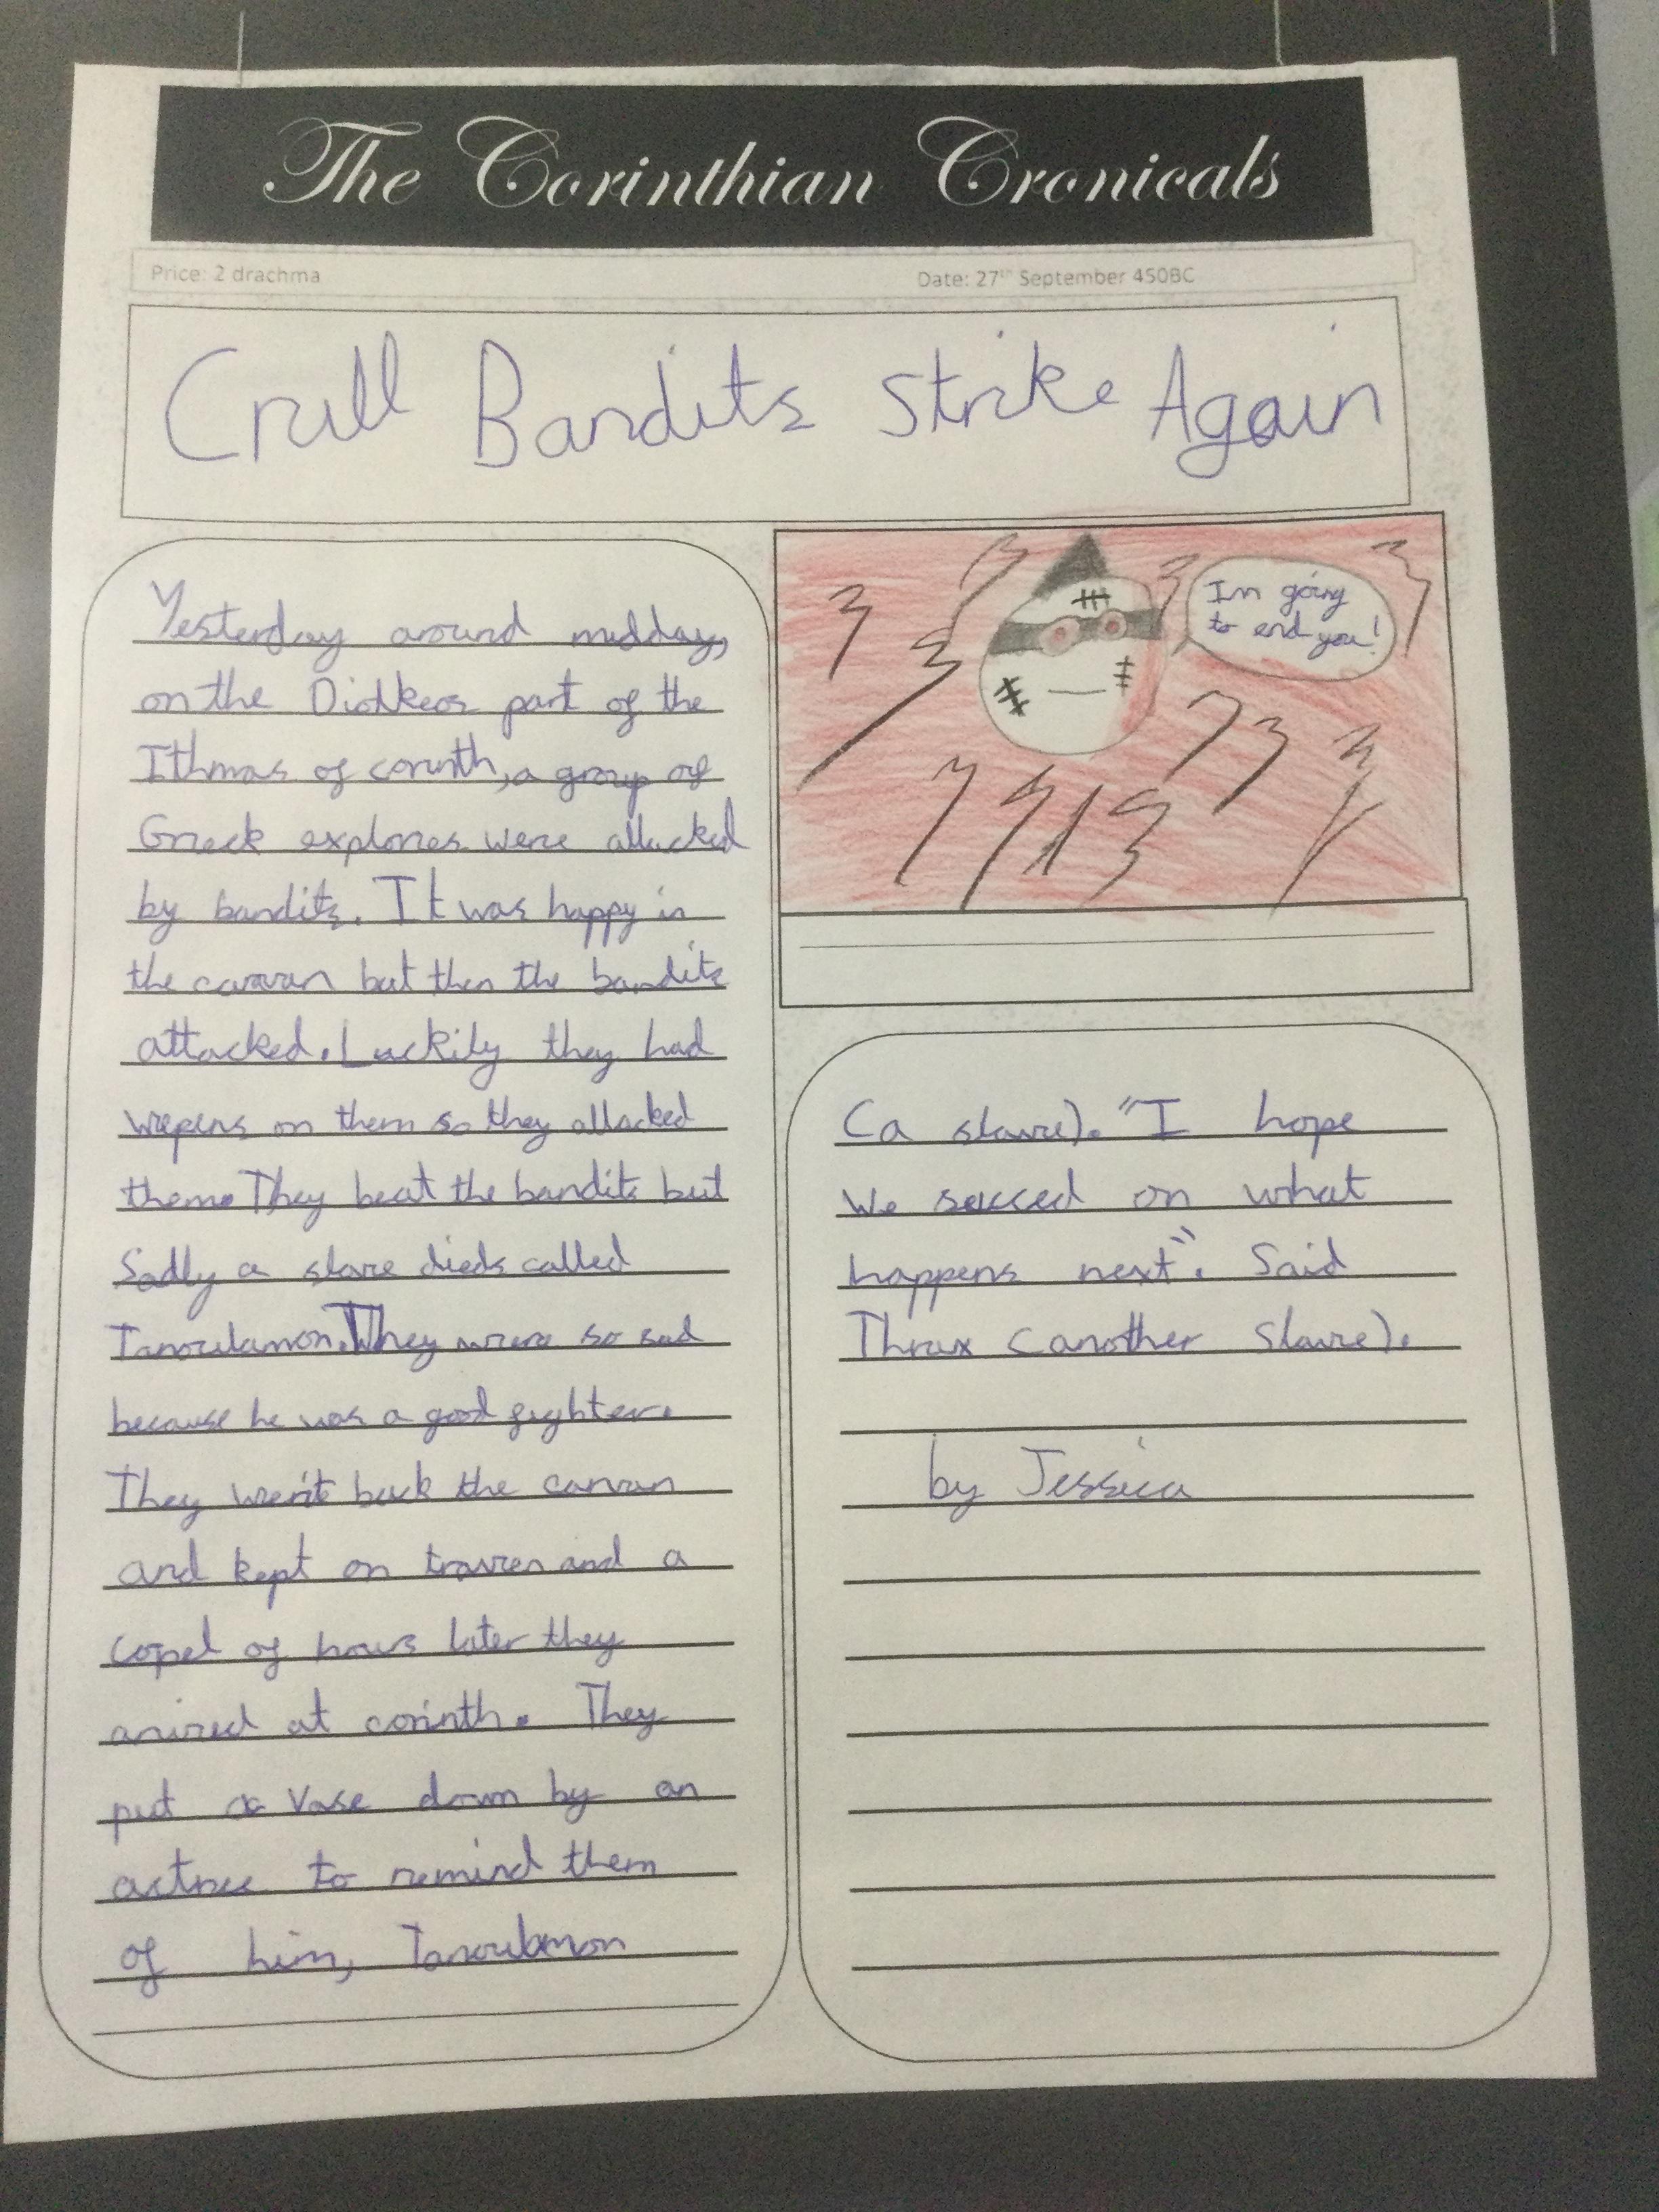 The Corinthian Cronicals
Price: 2 drachma
Date: 27th September 450BC
Crull Bandits Strike Again
Yesterday around midday,
on the Diolkeos part of the
Ithmas of corinth, a group of
Greek explores were attacked
by bandits. It was happy in
the caravan but then the bandits
attacked. Luckily they had
wepens on them so they attacked
them. They beat the bandits but
Sadly a slave died called
Tanoulamon. They were so sad
because he was a good fighter.
They went back the carvan
and kept on traven and a
copel of hours later they
arived at corinth. They
put a vase down by an
to remind them
of him, Tanoulamon
Im going
to end you!
(a slave). "I hope
we succed on what
happens next". Said
Thrax (another slave).
by Jessica